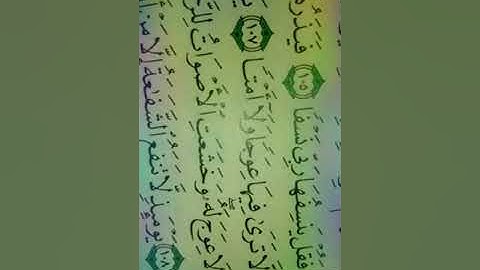 فَقُلْ يَنسِفُهَا رَبِّى نَسْفًا ﴿١٠٥﴾
لَّا تَرَىٰ فِيهَا عِوَجًا وَلَآ أَمْتًا ﴿١٠٧﴾
لَا عِوَجَ لَهُۥ وَخَشَعَتِ ٱلْأَصْوَاتُ
﴿١٠٨﴾ يَوْمَئِذٍ لَّا تَنفَعُ ٱلشَّفَٰعَةُ إِلَّا مَنْ